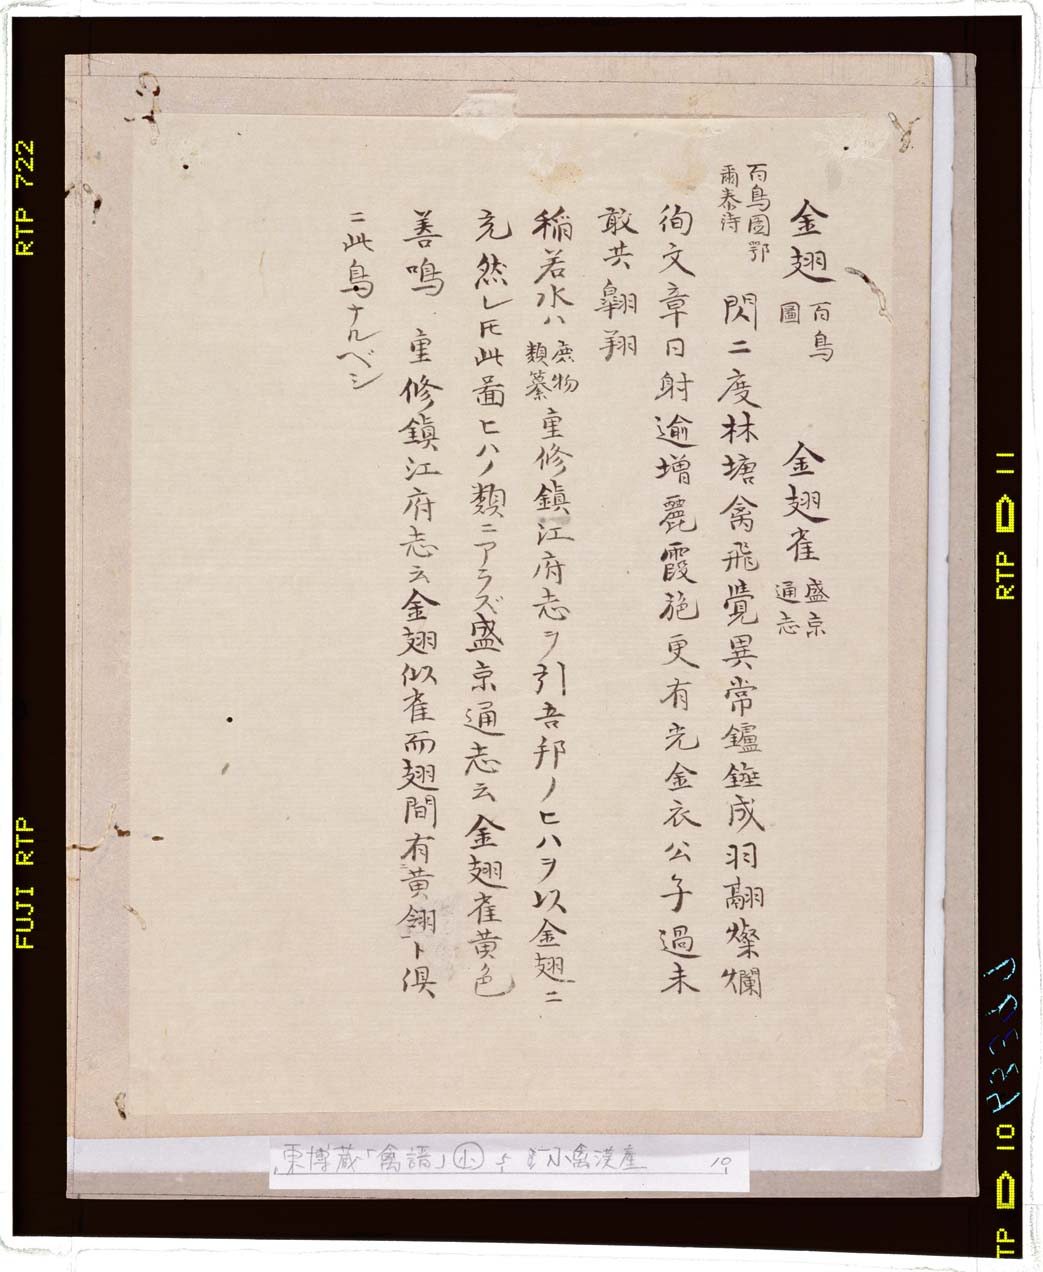 金翅 百鳥圖 金翅雀 盛京通志
百鳥圖鄂爾泰詩 閃二度林塘禽飛覺異常鑪錘成羽翮燦爛
徇文章日射逾增麗霞施更有光金衣公子過未
敢共翺翔
稲若水ハ 庶物類纂 重修鎮江府志ヲ引吾邦ノヒハヲ以金翅ニ
充然レ𪜈此啚ヒハノ類ニアラズ盛京通志云金翅雀黄色
善鳴 重修鎮江府志云金翅似雀而翅間有黄翎ト倶
ニ此鳥ナルベシ
東博蔵「禽譜」小 小禽漢産 10
RTP 722
FUJI RTP
RTP D 11
TP D 10